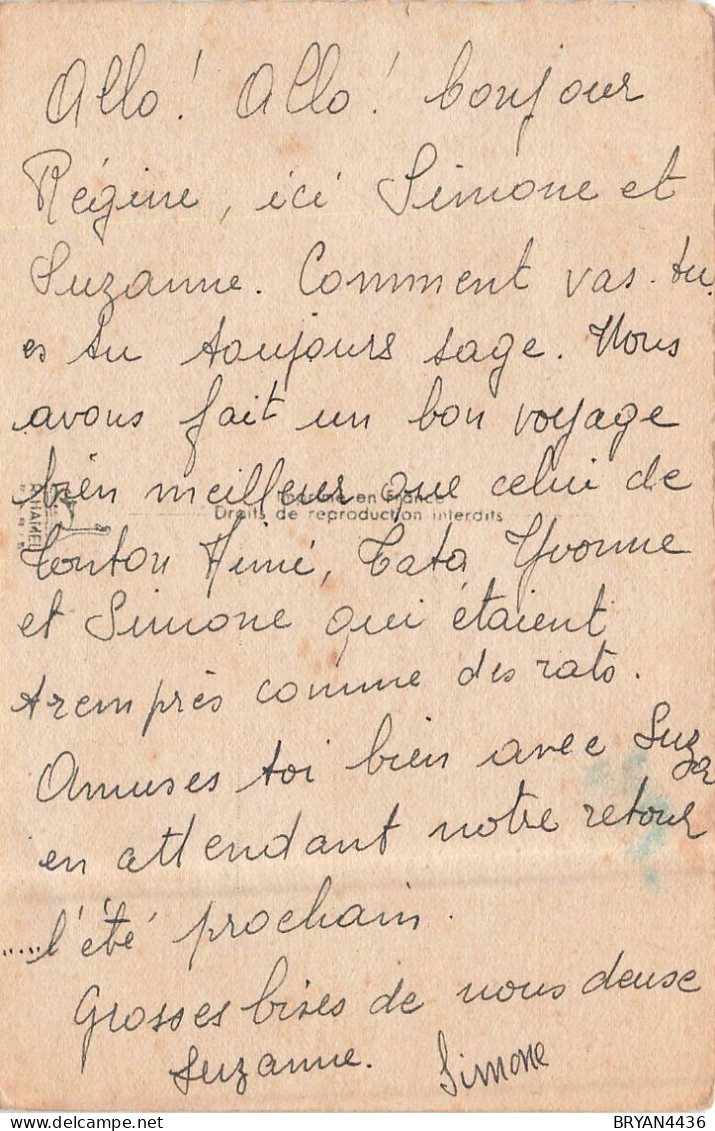 Allo! Allo! bonjour
Régine, ici Simone et
Suzanne. Comment vas-tu
es tu toujours sage. Nous
avons fait un bon voyage
bien meilleur que celui de
Imprimé en France
Droits de reproduction interdits
Tonton Aimé, Tata Yvonne
et Simone qui étaient
tremprès comme des rats.
Amuses toi bien avec
en attendant notre retour
.....l'été prochain.
Grosses bises de nous deuse
Suzanne. Simone
BRYAN4436